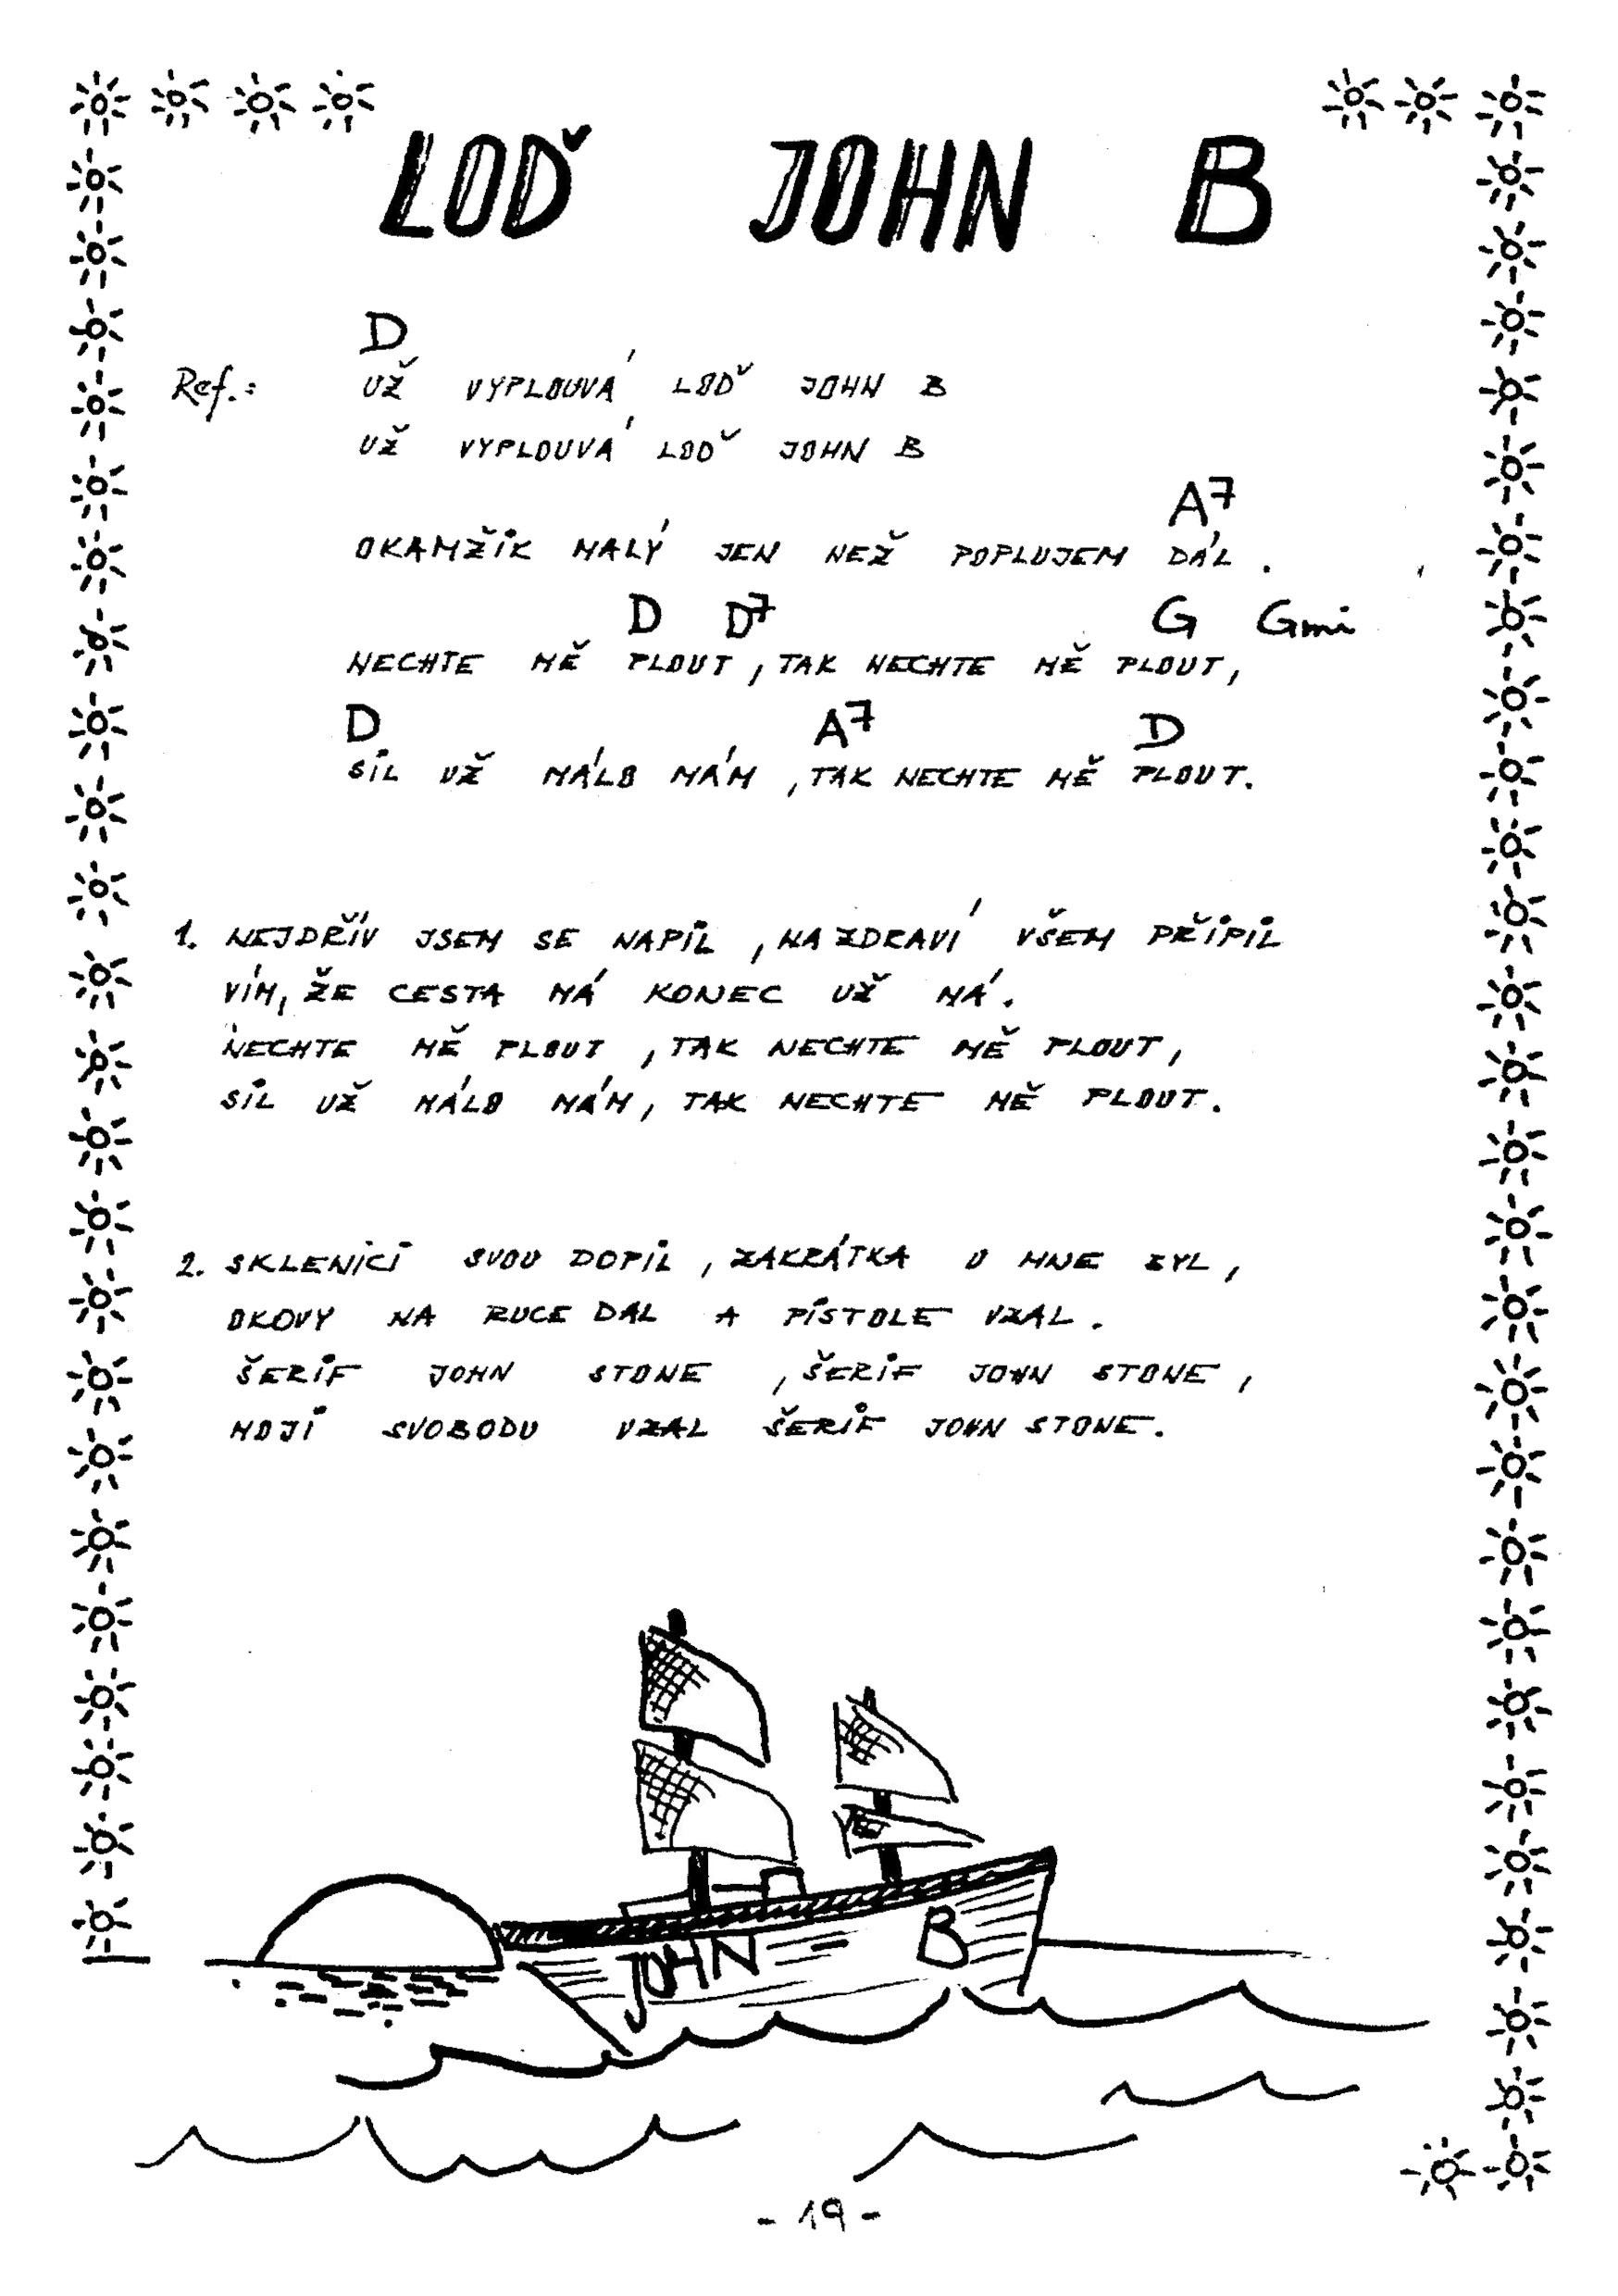 LOĎ JOHN B
D
Ref.: UŽ VYPLOUVÁ LOĎ JOHN B
UŽ VYPLOUVÁ LOĎ JOHN B
A7
OKAMŽIK MALÝ JEN NEŽ POPLUJEM DÁL .
D D7 G Gmi
NECHTE MĚ PLOUT , TAK NECHTE MĚ PLOUT ,
D A7 D
SIL UŽ MÁLO MÁM , TAK NECHTE MĚ PLOUT .
1. NEJDŘÍV JSEM SE NAPIL , NA ZDRAVÍ VŠEM PŘIPIL
VÍM, ŽE CESTA MÁ KONEC UŽ MÁ .
NECHTE MĚ PLOUT , TAK NECHTE MĚ PLOUT ,
SIL UŽ MÁLO MÁM , TAK NECHTE MĚ PLOUT .
2. SKLENICI SVOU DOPIL , ZAKRÁTKA U MNE BYL ,
OKOVY NA RUCE DAL A PISTOLE VZAL .
ŠERIF JOHN STONE , ŠERIF JOHN STONE ,
MOJI SVOBODU VZAL ŠERIF JOHN STONE .
JOHN B
- 19 -